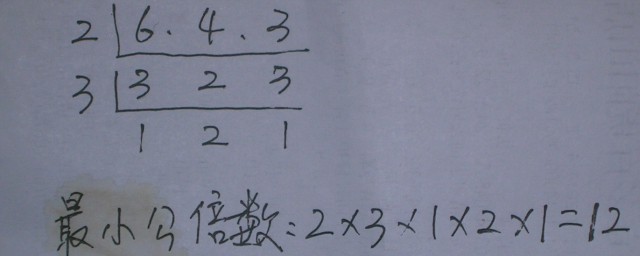 2 6.4.3
3 3 2 3
1 2 1
最小公倍数:2×3×1×2×1=12